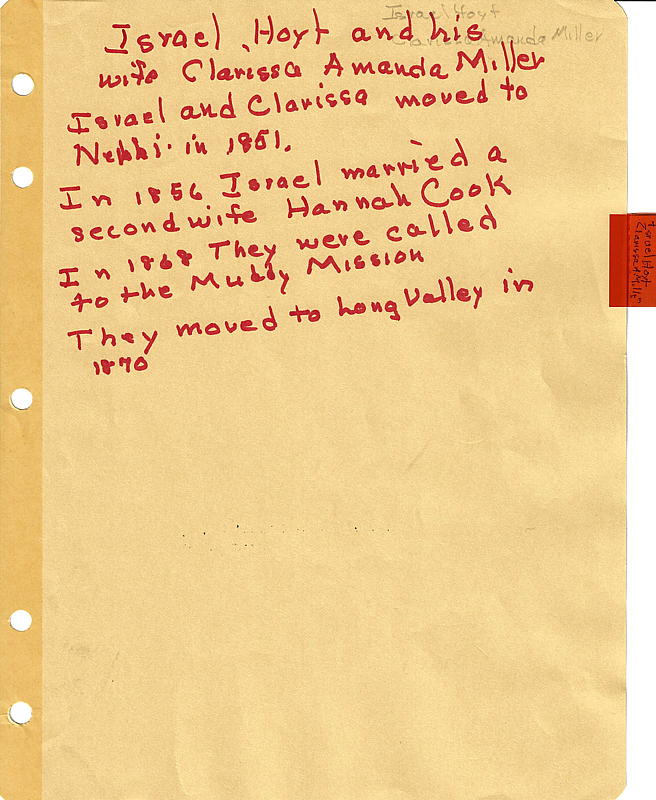 Israel Hoyt
Clarissa Amanda Miller
Israel Hoyt and his
wife Clarissa Amanda Miller
Israel and Clarissa moved to
Nephi in 1851.
In 1856 Israel married a
second wife Hannah Cook
In 1868 They were called
to the Muddy Mission
They moved to Long Valley in
1870
Israel Hoyt
Clarissa Miller